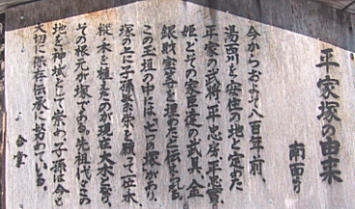 平家塚の由来
今からおよそ八百年前、
湯西川を安住の地と定めた
平家の武将、平忠房、平忠実、
姫とその家臣達の武具、金
銀財宝等を埋めたと伝え
この王垣の中には、七つの塚があり、
塚の上に子孫繁栄を願って
樅木を植えたのが現在大木となり、
その根元が塚である。先祖代々この
地を神域として崇め、子孫は今も
大切に保存伝承に努めている。
合掌